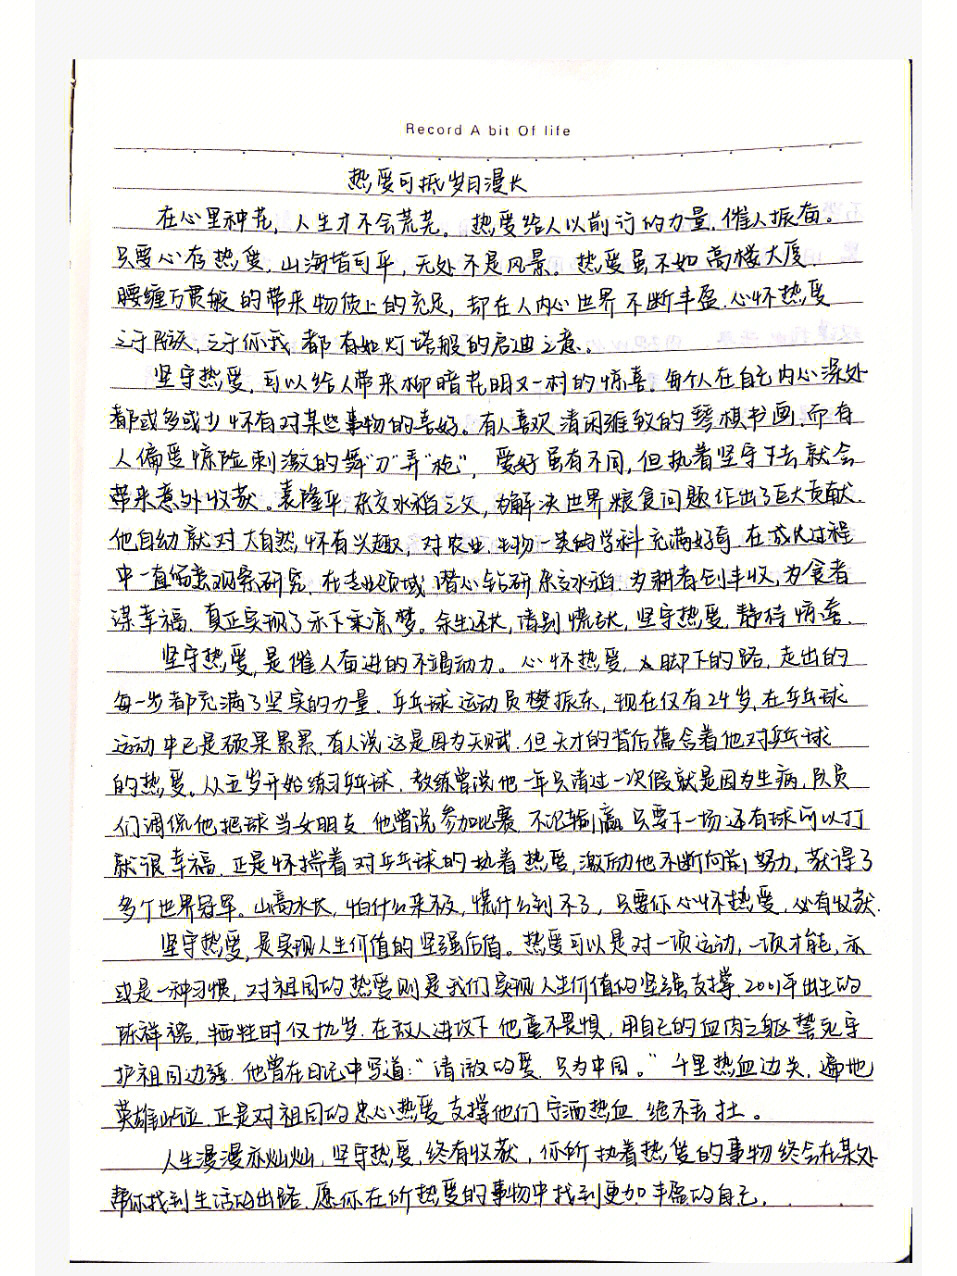 Record A bit Of life
热爱可抵岁月漫长
在心里种花，人生才不会荒芜。热爱给人以前行的力量，催人振奋。
只要心存热爱，山海皆可平，无处不是风景。热爱虽不如高楼大厦、
腰缠万贯般的带来物质上的充足，却在人内心世界不断丰盈。心怀热爱
之于你我，都有如灯塔般的启迪之意。
坚守热爱，可以给人带来柳暗花明又一村的惊喜。每个人在自己内心深处
都或多或少怀有对某些事物的喜好。有人喜欢清闲雅致的琴棋书画，而有
人偏爱惊险刺激的舞"刀"弄"枪"，爱好虽有不同，但执着坚守下去就会
带来意外收获。袁隆平，杂交水稻之父，为解决世界粮食问题作出了巨大贡献。
他自幼就对大自然怀有兴趣，对农业、生物一类的学科充满好奇，在成长过程
中一直留意观察研究，在专业领域潜心钻研杂交水稻，为耕者创丰收，为食者
谋幸福，真正实现了禾下乘凉梦。余生还长，请别慌张，坚守热爱，静待惊喜。
坚守热爱，是催人奋进的不竭动力。心怀热爱，脚下的路，走出的
每一步都充满了坚实的力量。乒乓球运动员樊振东，现在仅有24岁，在乒乓球
运动中已是硕果累累，有人说这是因为天赋，但天才的背后蕴含着他对乒乓球
的热爱。从五岁开始练习乒乓球，教练曾说他一年只请过一次假就是因为生病，队员
们调侃他把球当女朋友，他曾说参加比赛，不论输赢，只要下一场还有球可以打
就很幸福。正是怀揣着对乒乓球的执着热爱，激励他不断向前努力，获得了
多个世界冠军。山高水长，怕什么来不及，慌什么到不了，只要你心怀热爱，必有收获。
坚守热爱，是实现人生价值的坚强后盾。热爱可以是对一项运动，一项才能，亦
或是一种习惯，对祖国的热爱则是我们实现人生价值的坚强支撑。2001年出生的
陈祥榕，牺牲时仅19岁。在敌人进攻下他毫不畏惧，用自己的血肉之躯誓死守
护祖国边疆。他曾在日记中写道："清澈的爱，只为中国。"千里热血边关，遍地
英雄屹立，正是对祖国的忠心热爱支撑他们宁洒热血，绝不丢土。
人生漫漫亦灿灿，坚守热爱，终有收获，你所执着热爱的事物终会在某处
帮你找到生活的出路。愿你在所热爱的事物中找到更加丰盈的自己。